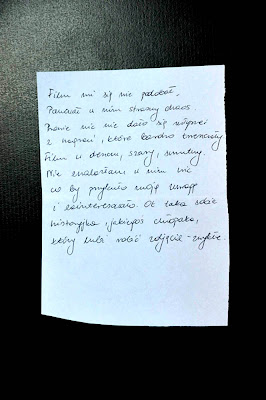 Film mi się nie podobał,
Panował w nim straszny chaos
Prawie nic nie dało się usłyszeć
z nagrań, które bardzo trzeszczały
Film w deseń, szary, smutny
Nie znalazłam w nim nic
co by przykuło moją uwagę
i zainteresowało. Ot taka sobie
historyjka, jakiegoś chłopaka,
który lubi robić zdjęcia - zwykłe.